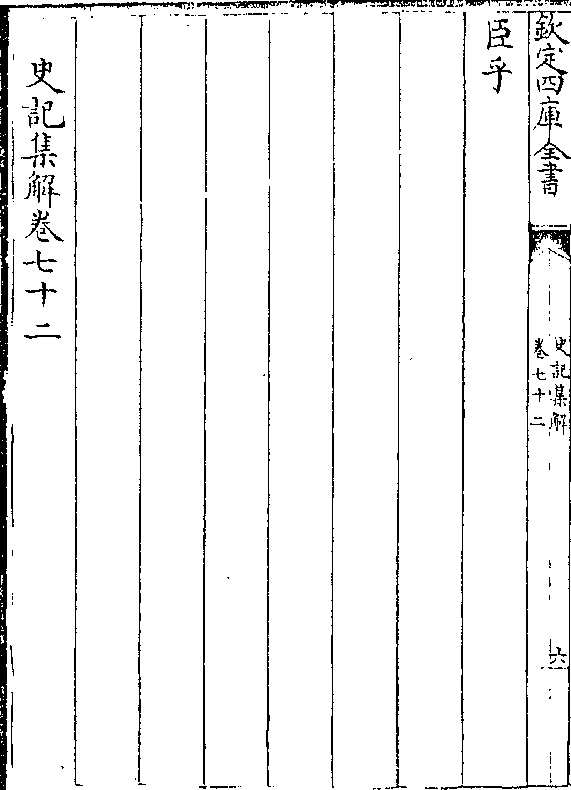 欽定四庫全書
史記集解
卷七十二
六
臣乎
史記集解卷七十二